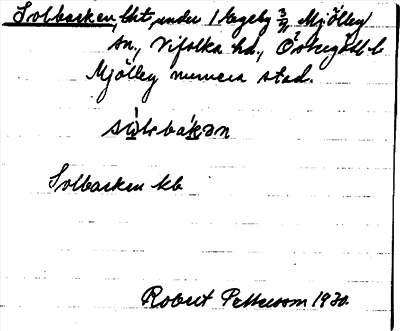 Solbacken, lht, under 1 Lageby 3/8 Mjölby
sn., Vifolka hd., Östergötl. l.
Mjölby numera stad.
sὼlbákən
Solbacken kb
Robert Pettersson 1930.